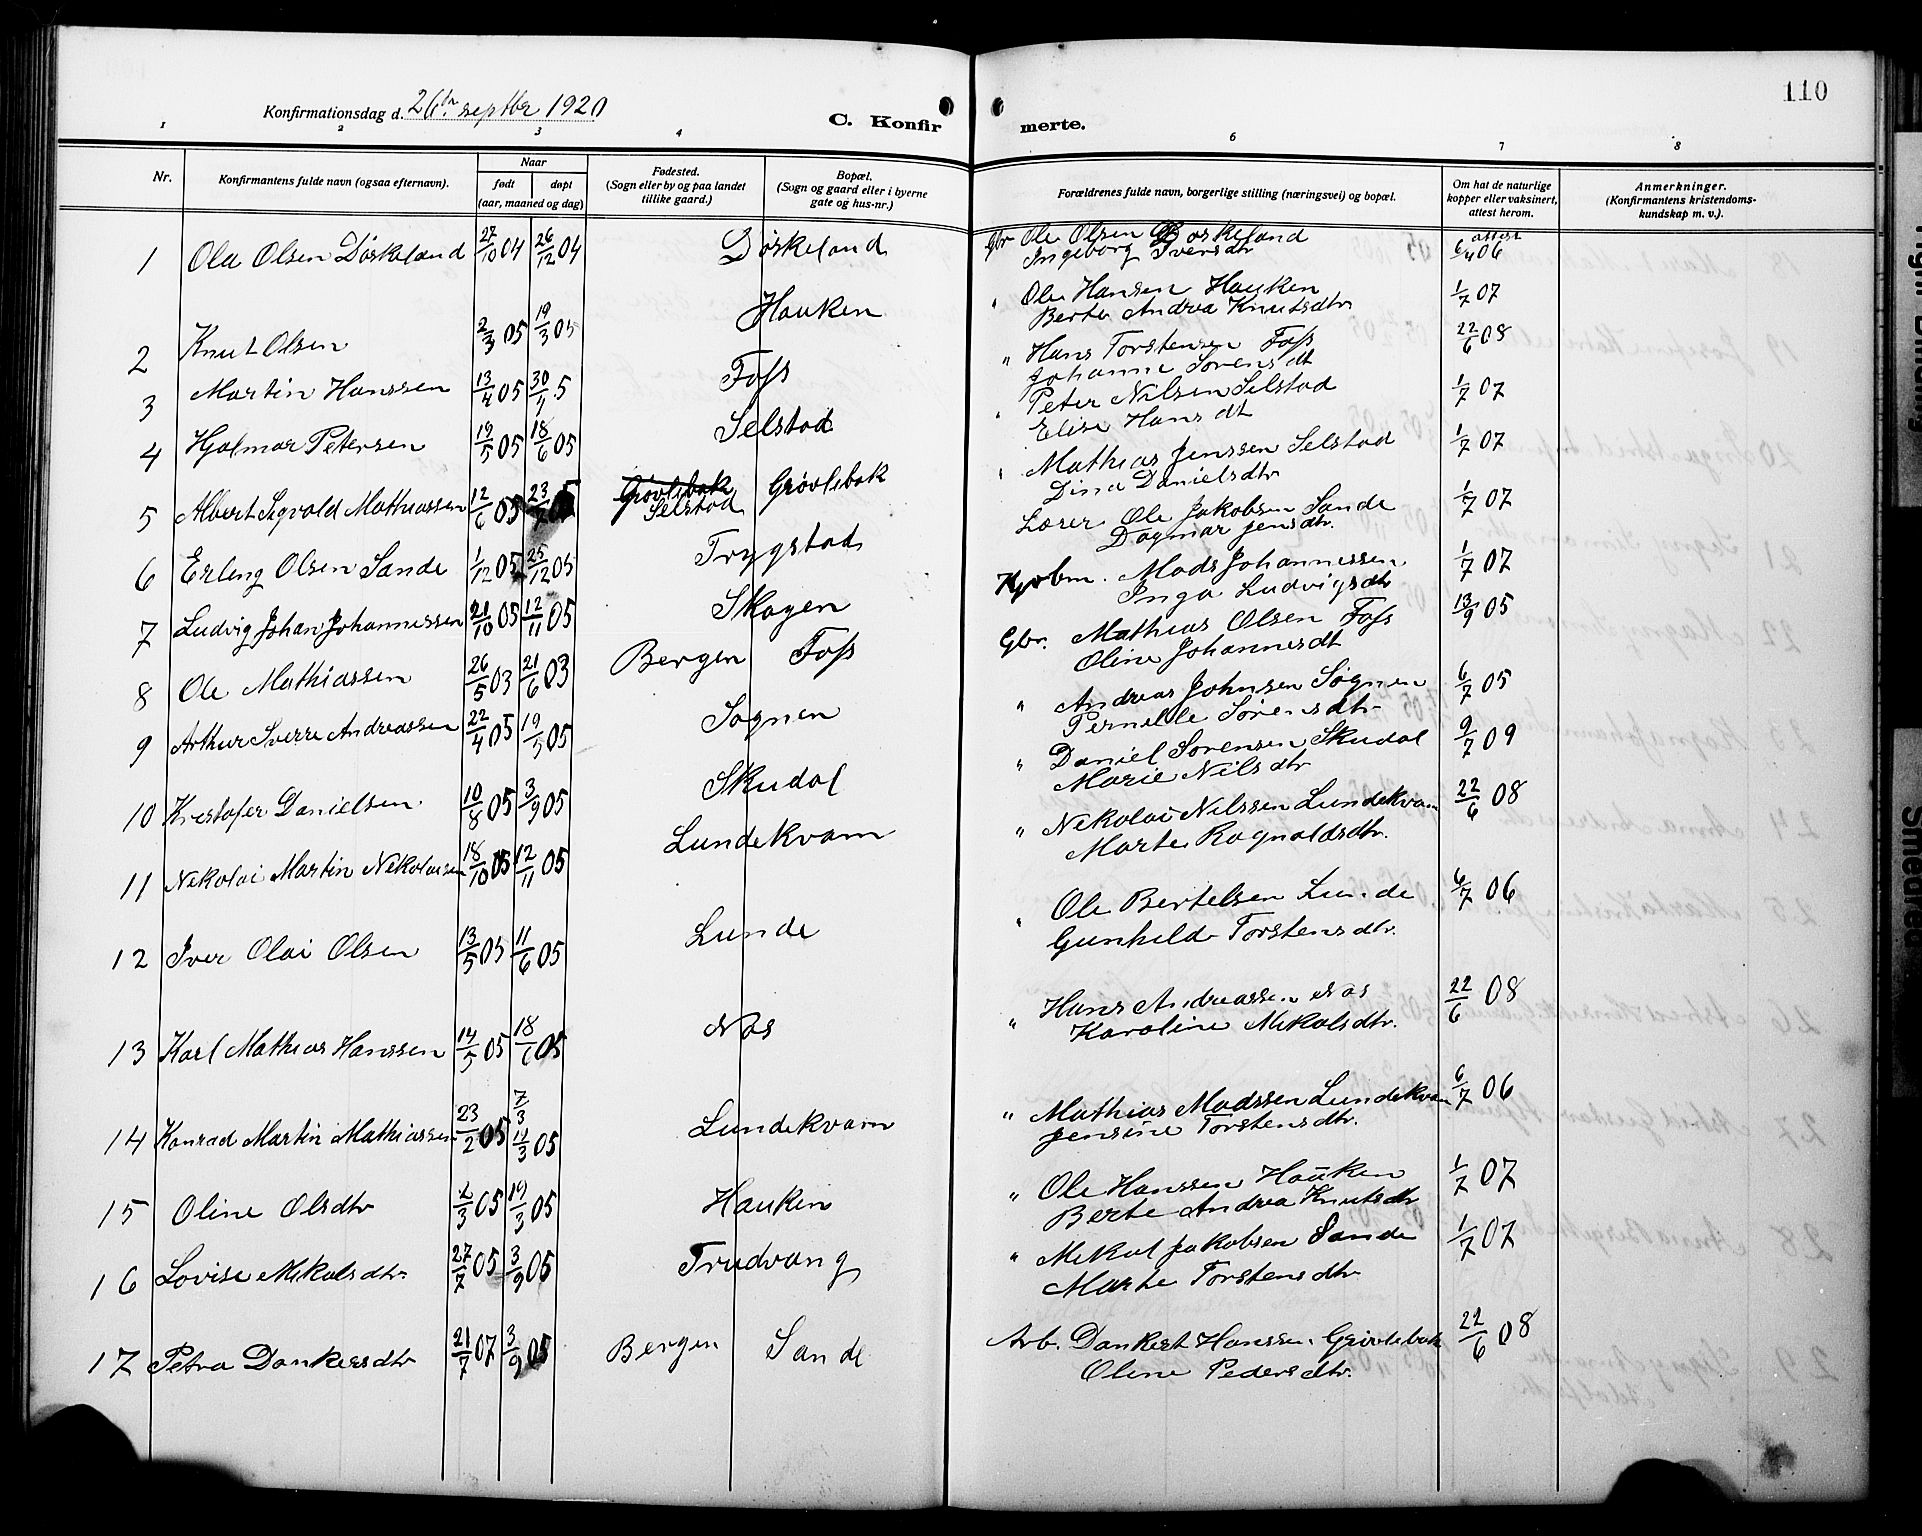 110
Konfirmationsdag d. 26de septbr 1920
C. Konfirmerte.
1 2 3 4 6 7 8
Nr.
Konfirmantens fulde navn (ogsaa efternavn).
Naar
født døpt
(aar, maaned og dag)
Fødested.
(Sogn eller by og paa landet
tillike gaard.)
Bopæl.
(Sogn og gaard eller i byerne
gate og hus-nr.)
Forældrenes fulde navn, borgerlige stilling (næringsvei) og bopæl.
Om hat de naturlige
kopper eller vaksinert,
attest herom.
Anmerkninger.
(Konfirmantens kristendoms-
kundskap m. v.).
1 Ola Olsen Døskeland 27/10 04 26/12 04 Døskeland Gbr Ole Olsen Døskeland attest 6/4 06
Ingeborg Iversdtr
2 Knut Olsen 2/3 05 19/3 05 Hauken " Ole Hansen Hauken 1/7 07
Berte Andrea Knutsdtr
3 Martin Hanssen 13/4 05 30/4 5 Foss " Hans Torstensen Foss 22/6 08
Johanne Sørensdt
4 Hjalmar Petersen 19/5 05 18/6 05 Selstad " Peter Nilsen Selstad 1/7 07
Elise Hansdt
5 Albert Sigvald Mathiassen 12/6 05 23/7 05 Grøvlebak Selstad Grøvlebak " Mathias Jenssen Selstad 1/7 07
Dina Danielsdtr
6 Erling Olsen Sande 1/12 05 25/12 05 Trygstad Lærer Ole Jakobsen Sande 1/7 07
Dagmar Jensdtr.
7 Ludvig Johan Johannessen 21/10 05 12/11 05 Skagen Kjøbm. Mads Johannessen 1/7 07
Inga Ludvigsdtr
8 Ole Mathiassen 26/5 03 21/6 03 Bergen Foss Gbr. Mathias Olsen Foss 13/9 05
Oline Johannesdt
9 Arthur Sverre Andreassen 22/4 05 19/5 05 Sognen " Andreas Johnsen Sognen 6/7 05
Pernelle Sørensdtr
10 Krestofer Danielsen 10/8 05 3/9 05 Skudal " Daniel Sørensen Skudal 9/7 09
Marie Nilsdtr
11 Nikolai Martin Nikolaisen 18/10 05 12/11 05 Lundekvam " Nikolai Nilssen Lundekvam 22/6 08
Marte Ragnaldsdtr.
12 Iver Olai Olsen 13/5 05 11/6 05 Lunde " Ole Bertelsen Lunde 6/7 06
Gunhild Torstensdtr.
13 Karl Mathias Hanssen 14/5 05 18/6 05 Nos " Hans Andreassen Nos 22/6 08
Karoline Mikalsdtr.
14 Konrad Martin Mathiassen 23/2 05 7/3 12/3 05 Lundekvam " Mathias Madssen Lundekvam 6/7 06
Jensine Torstensdtr.
15 Oline Olsdtr 2/3 05 19/3 05 Hauken " Ole Hanssen Hauken 1/7 07
Berte Andrea Knutsdtr
16 Lovise Mikalsdtr. 27/7 05 3/9 05 Trudvang " Mikal Jakobsen Sande 1/7 07
Marte Torstensdtr
17 Petra Dankersdtr 21/7 07 3/9 05 Bergen Sande Arb. Dankert Hanssen Grøvlebak 22/6 08
Oline Pedersdtr.